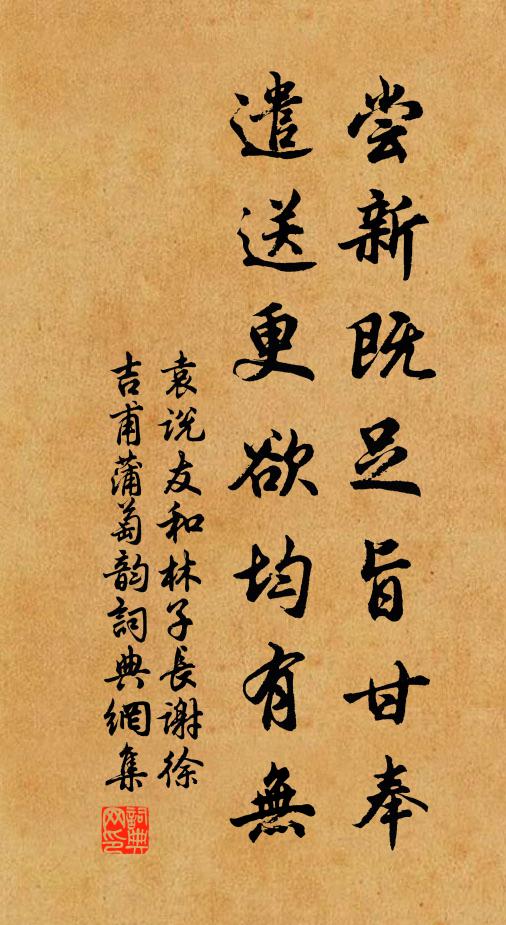 尝新既足旨甘奉
遣送更欲均有無
袁说友和林子長谢徐
吉甫蒲萄韵詞典網集
詞典网印